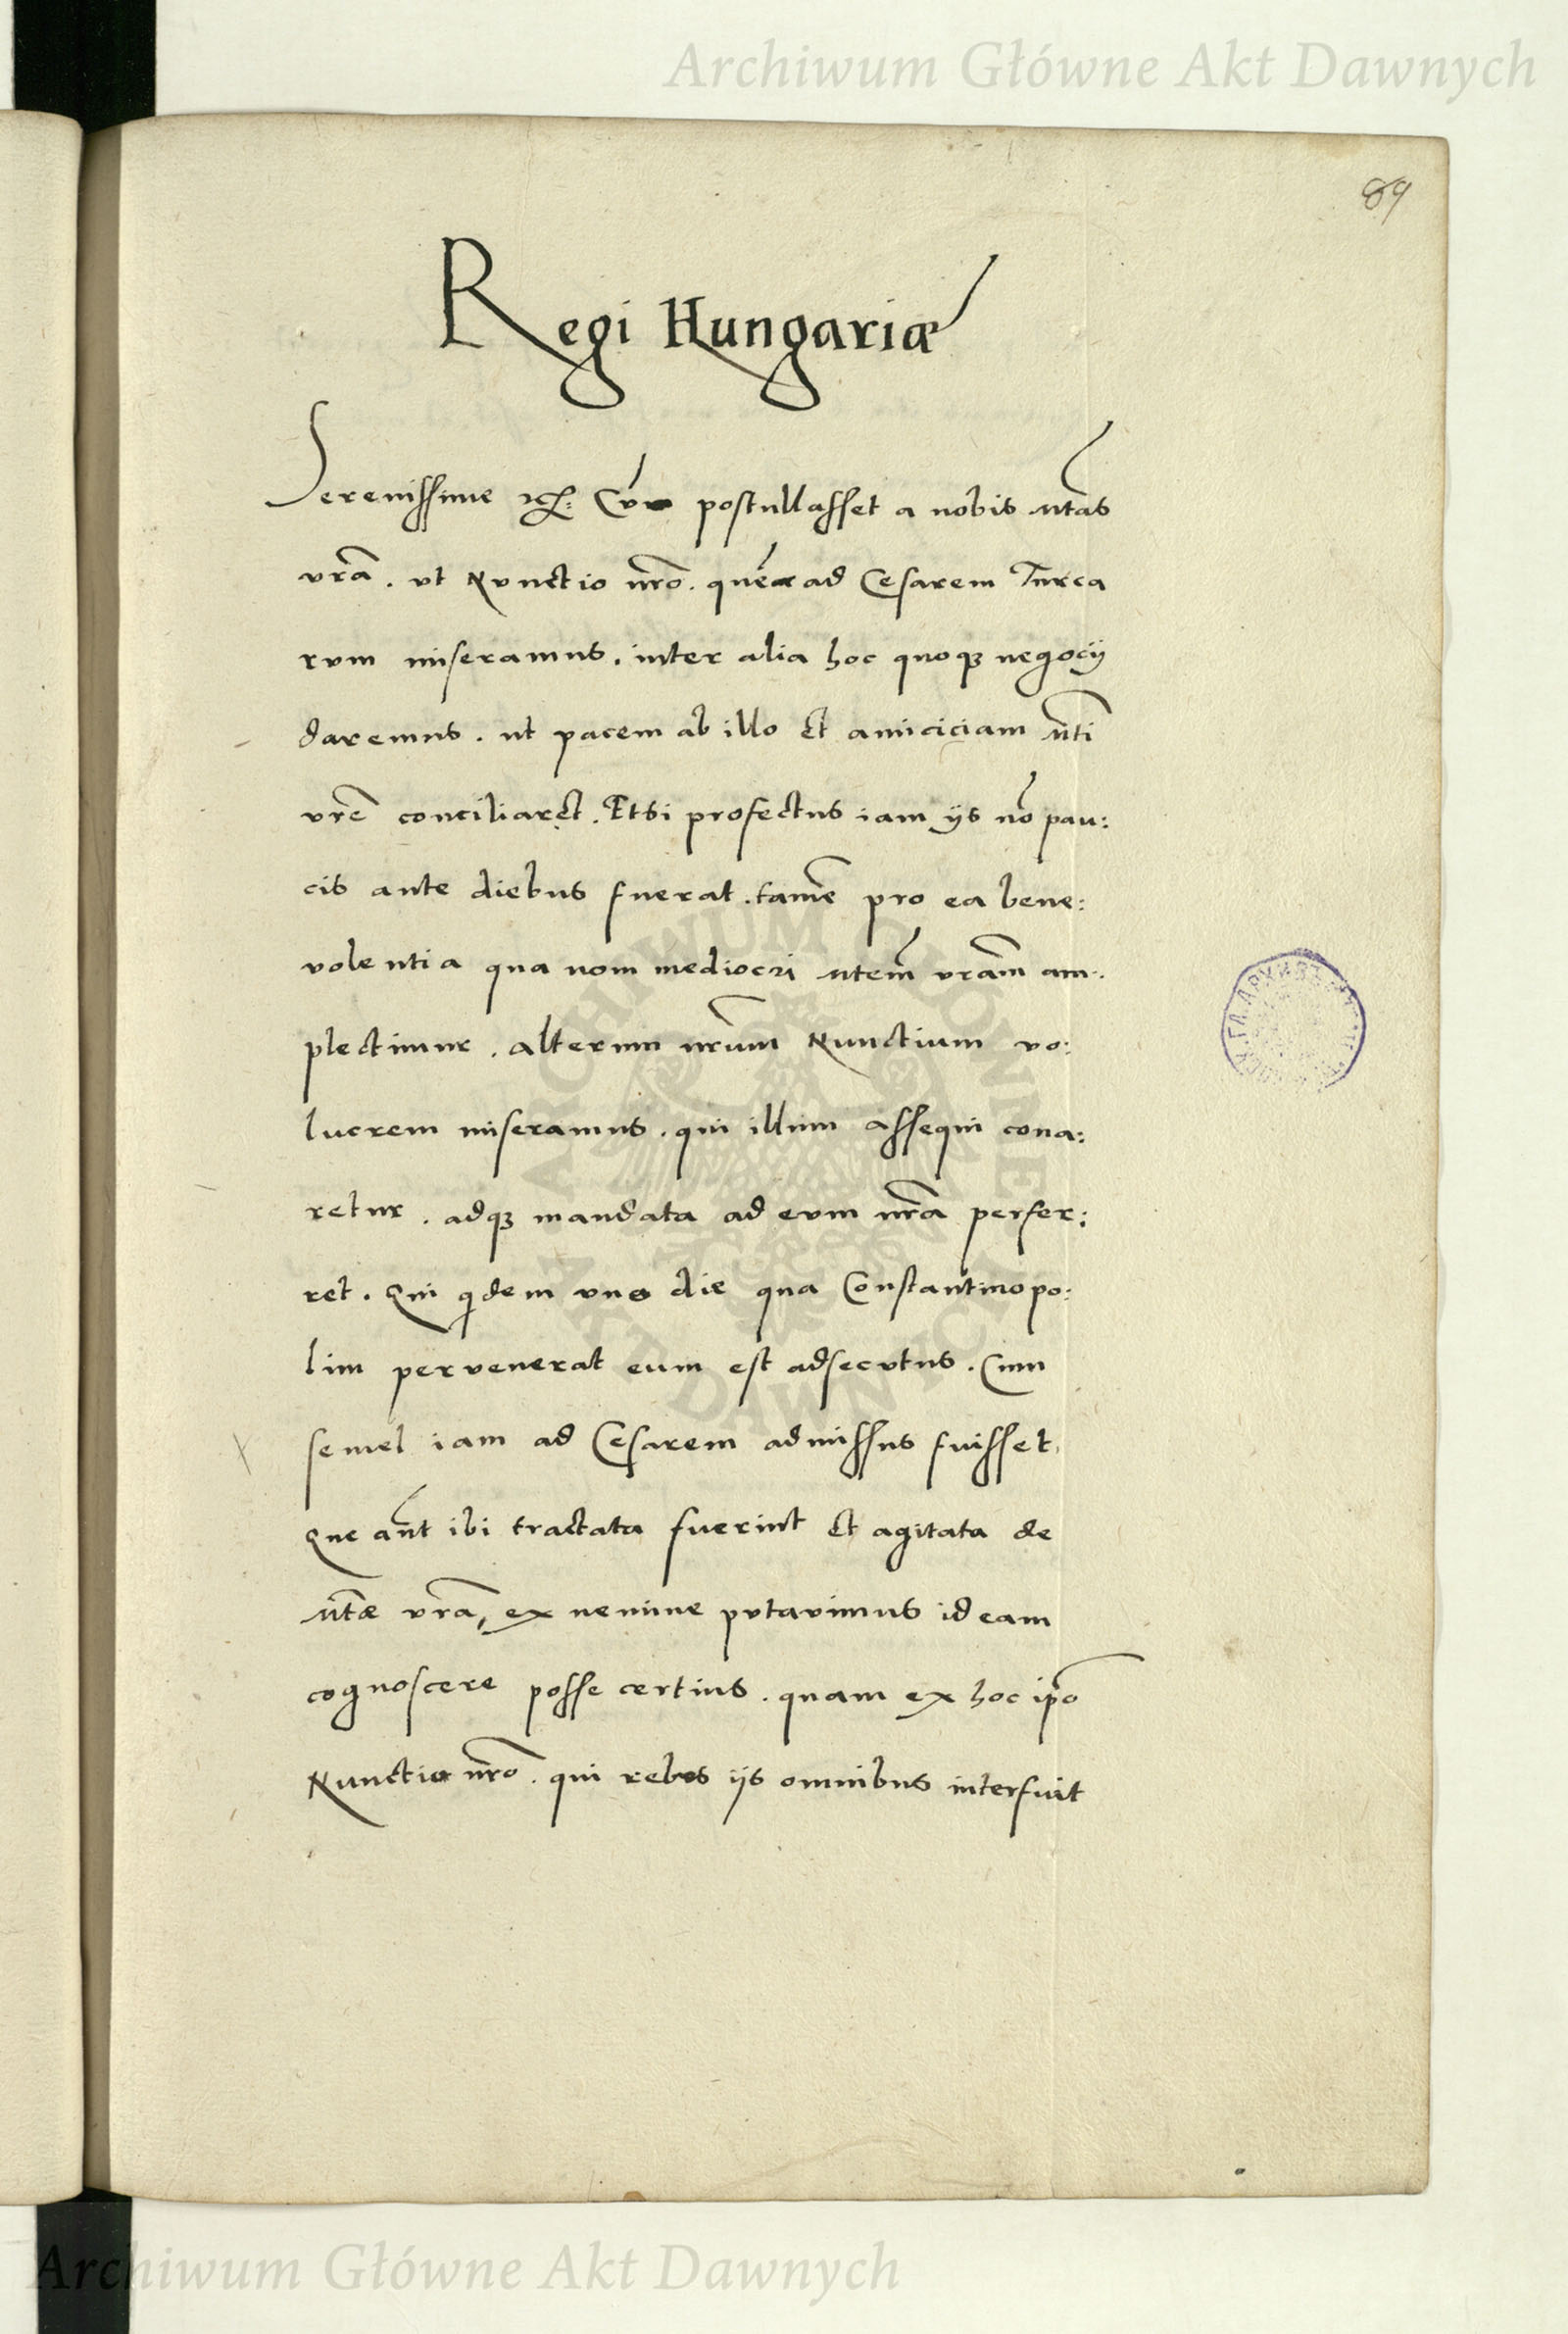 Archiwum Główne Akt Dawnych
89
Regi Hungariæ
Serenissime Cu̅ postullasset a nobis Mtas
vra̅. ut Nunctio nro̅. que̅ ad Cesarem Turca
rum miseramus. inter alia hoc quoqꝫ negocij
daremus. ut pacem ab illo et amiciciam Mti
vre̅ conciliaret. Etsi profectus iam ijs no̅ pau:
cis ante diebus fuerat. tame̅ pro ea bene:
volentia qua nom mediocri Mtem vram̅ am:
plectimur. alterum nrum̅ Nunctium vo:
lucrem miseramus. qui illum assequi cona:
retur. adqꝫ mandata ad eum nra̅ perfer:
ret. Qui qdem uno die qua Constantinopo:
lim pervenerat eum est adsecutus. Cum
semel iam ad Cesarem admissus fuisset.
Que aut̅ ibi tractata fuerint et agitata de
Mtæ vra̅, ex nemine putavimus id eam
cognoscere posse certius. quam ex hoc ipo̅
Nunctio nro̅. qui rebus ijs omnibus interfuit
ARCHIWUM GŁÓWNE
AKT DAWNYCH
Archiwum Główne Akt Dawnych